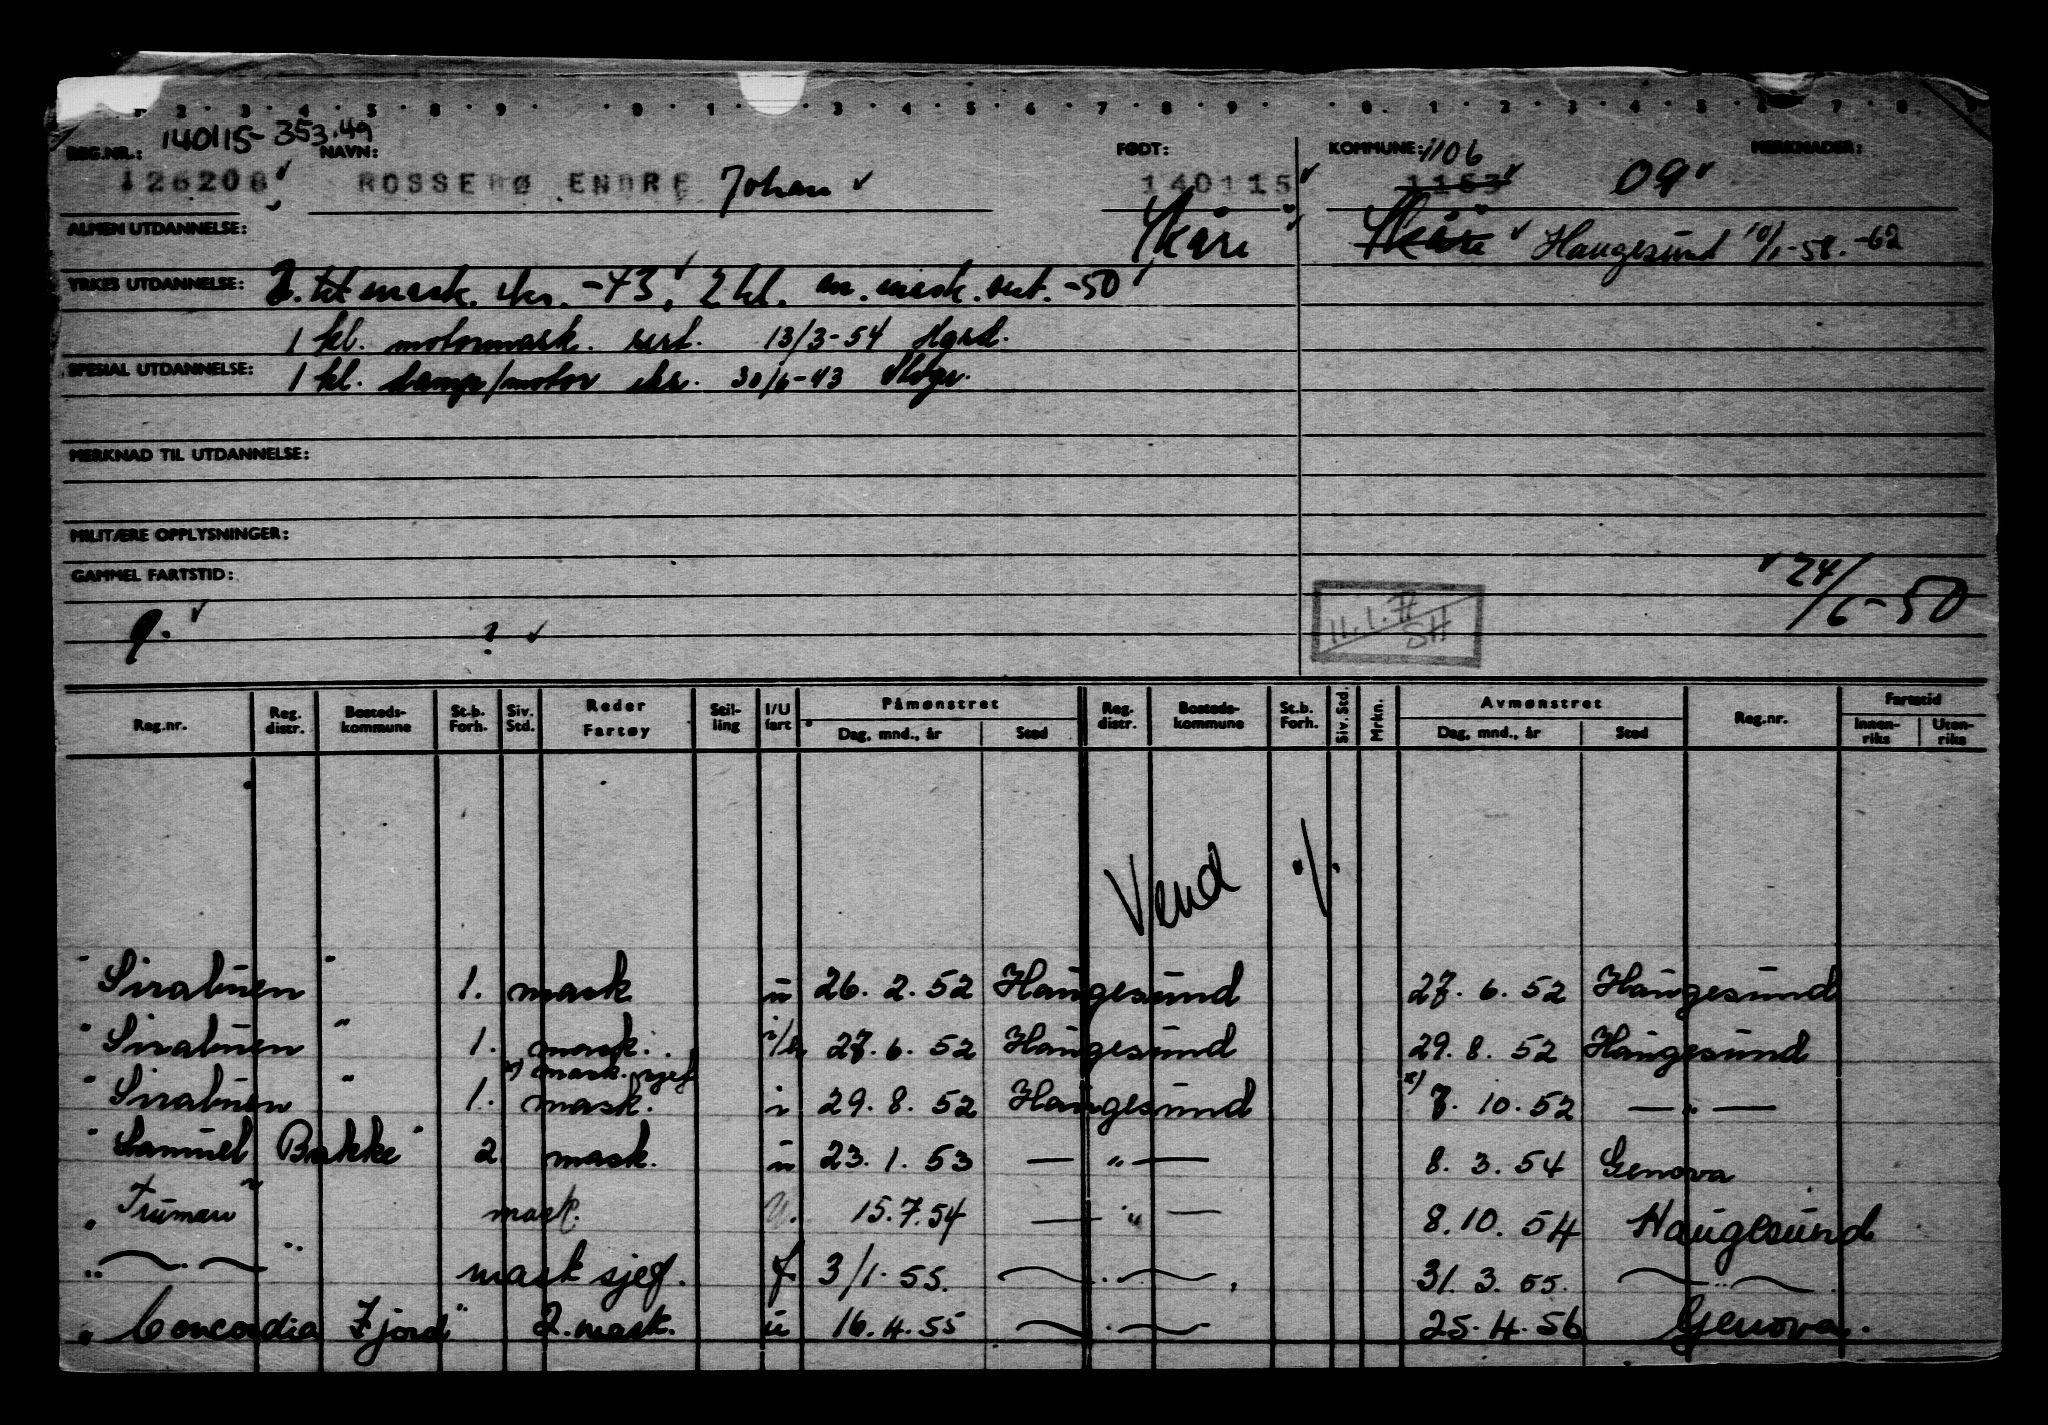 1 2 3 4 5 8 9 0 1 3 4 5 6 7 8 9 0 1 2 3 4 5 6 7 8 9
140115-353.49
REG.NR.: NAVN: FØDT: KOMMUNE: 1106 MERKNADER:
126206 ROSSEBØ ENDRE Johan 140115 1153 09
ALMEN UTDANNELSE: Skåre Skåre Haugesund 10/1-58. -62
YRKES UTDANNELSE: 2. tit mask. eks. -43, 2 kl. mask. sert. -50
1 kl. motormask. sert. 13/3-54 Hgsd.
SPESIAL UTDANNELSE: 1 kl. damp/motor eks. 30/6-43
MERKNAD TIL UTDANNELSE:
MILITÆRE OPPLYSNINGER:
GAMMEL FARTSTID: 24/6-50
9. ? 11.1.71 SH
Reg.nr. Reg. distr. Bosteds-kommune St.b. Forh. Siv. Std. Reder Fartøy Stil-ling I/U fart Påmønstret Dag, mnd., år Sted Reg. distr. Bosteds-kommune St.b. Forh. Siv. Std. Mrkn. Avmønstret Dag, mnd., år Sted Reg.nr. Fartstid Innen-riks Uten-riks
Vend ./.
"Sirabuen" 1. mask u 26. 2. 52 Haugesund 27. 6. 52 Haugesund
"Sirabuen" 1. mask. i/u 27. 6. 52 Haugesund 29. 8. 52 Haugesund
x) mask. sjef
"Sirabuen" 1. mask. i 29. 8. 52 Haugesund x) 7. 10. 52 — " —
"Samuel Bakke" 2 mask. u 23. 1. 53 — " — 8. 3. 54 Genova
"Truman" mask. U. 15.7.54 — " — 8. 10. 54 Haugesund
" — " — " mask sjef. f 3/1. 55. — " — 31. 3. 55. — " —
"Concordia Fjord" 2. mask. u 16. 4. 55 — " — 25. 4. 56 Genova.